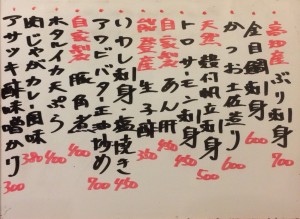 高知産 ぶり刺身 700
金目鯛刺身 600
かつお土佐造り 600
天然 鎧付帆立刺身 500
トロサーモン刺身 450
自家製 あん肝 450
能登産 生子酢 350
いわし刺身 塩焼き 450
アワビバター玉子炒め 700
自家製 豚角煮 400
ホタルイカ天ぷら 400
肉じゃがカレー風味 380
アサツキ酢味噌かり 300